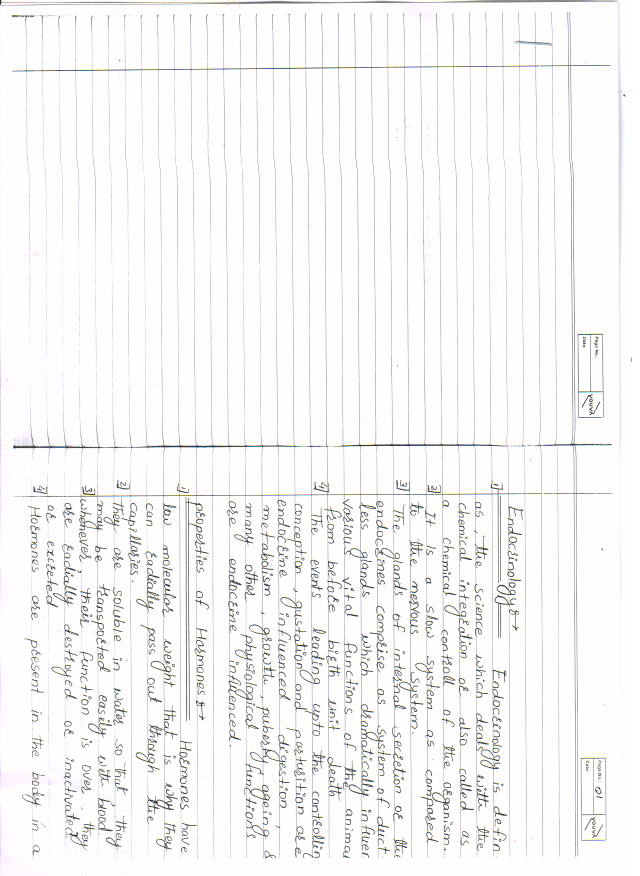 Page No.
Date
YOUVA
Page No. 01
Date
YOUVA
Endocrinology :→
1] Endocrinology is defin
as the science which deals with the
chemical integration or also called as
a chemical controll of the organism.
2] It is a slow system as compared
to the nervous system.
3] The glands of internal secretion or the
endocrines comprise as system of duct
less glands which dramatically influen
various vital functions of the animal
from before birth unit death
4] The events leading upto the controllin
conception, gustation and parturition are
endocrine influenced digestion,
metabolism, growth, puberty, ageing &
many other physiological functions
are endocrine influenced.
properties of Hormones :→
1] Hormones have
low molecular weight that is why they
can radially pass out through the
capillaries.
2] They are soluble in water so that, they
may be transported easily with blood
3] whenever, their function is over. they
are radially destroyed or inactivated
or excreted
4] Hormones are present in the body in a